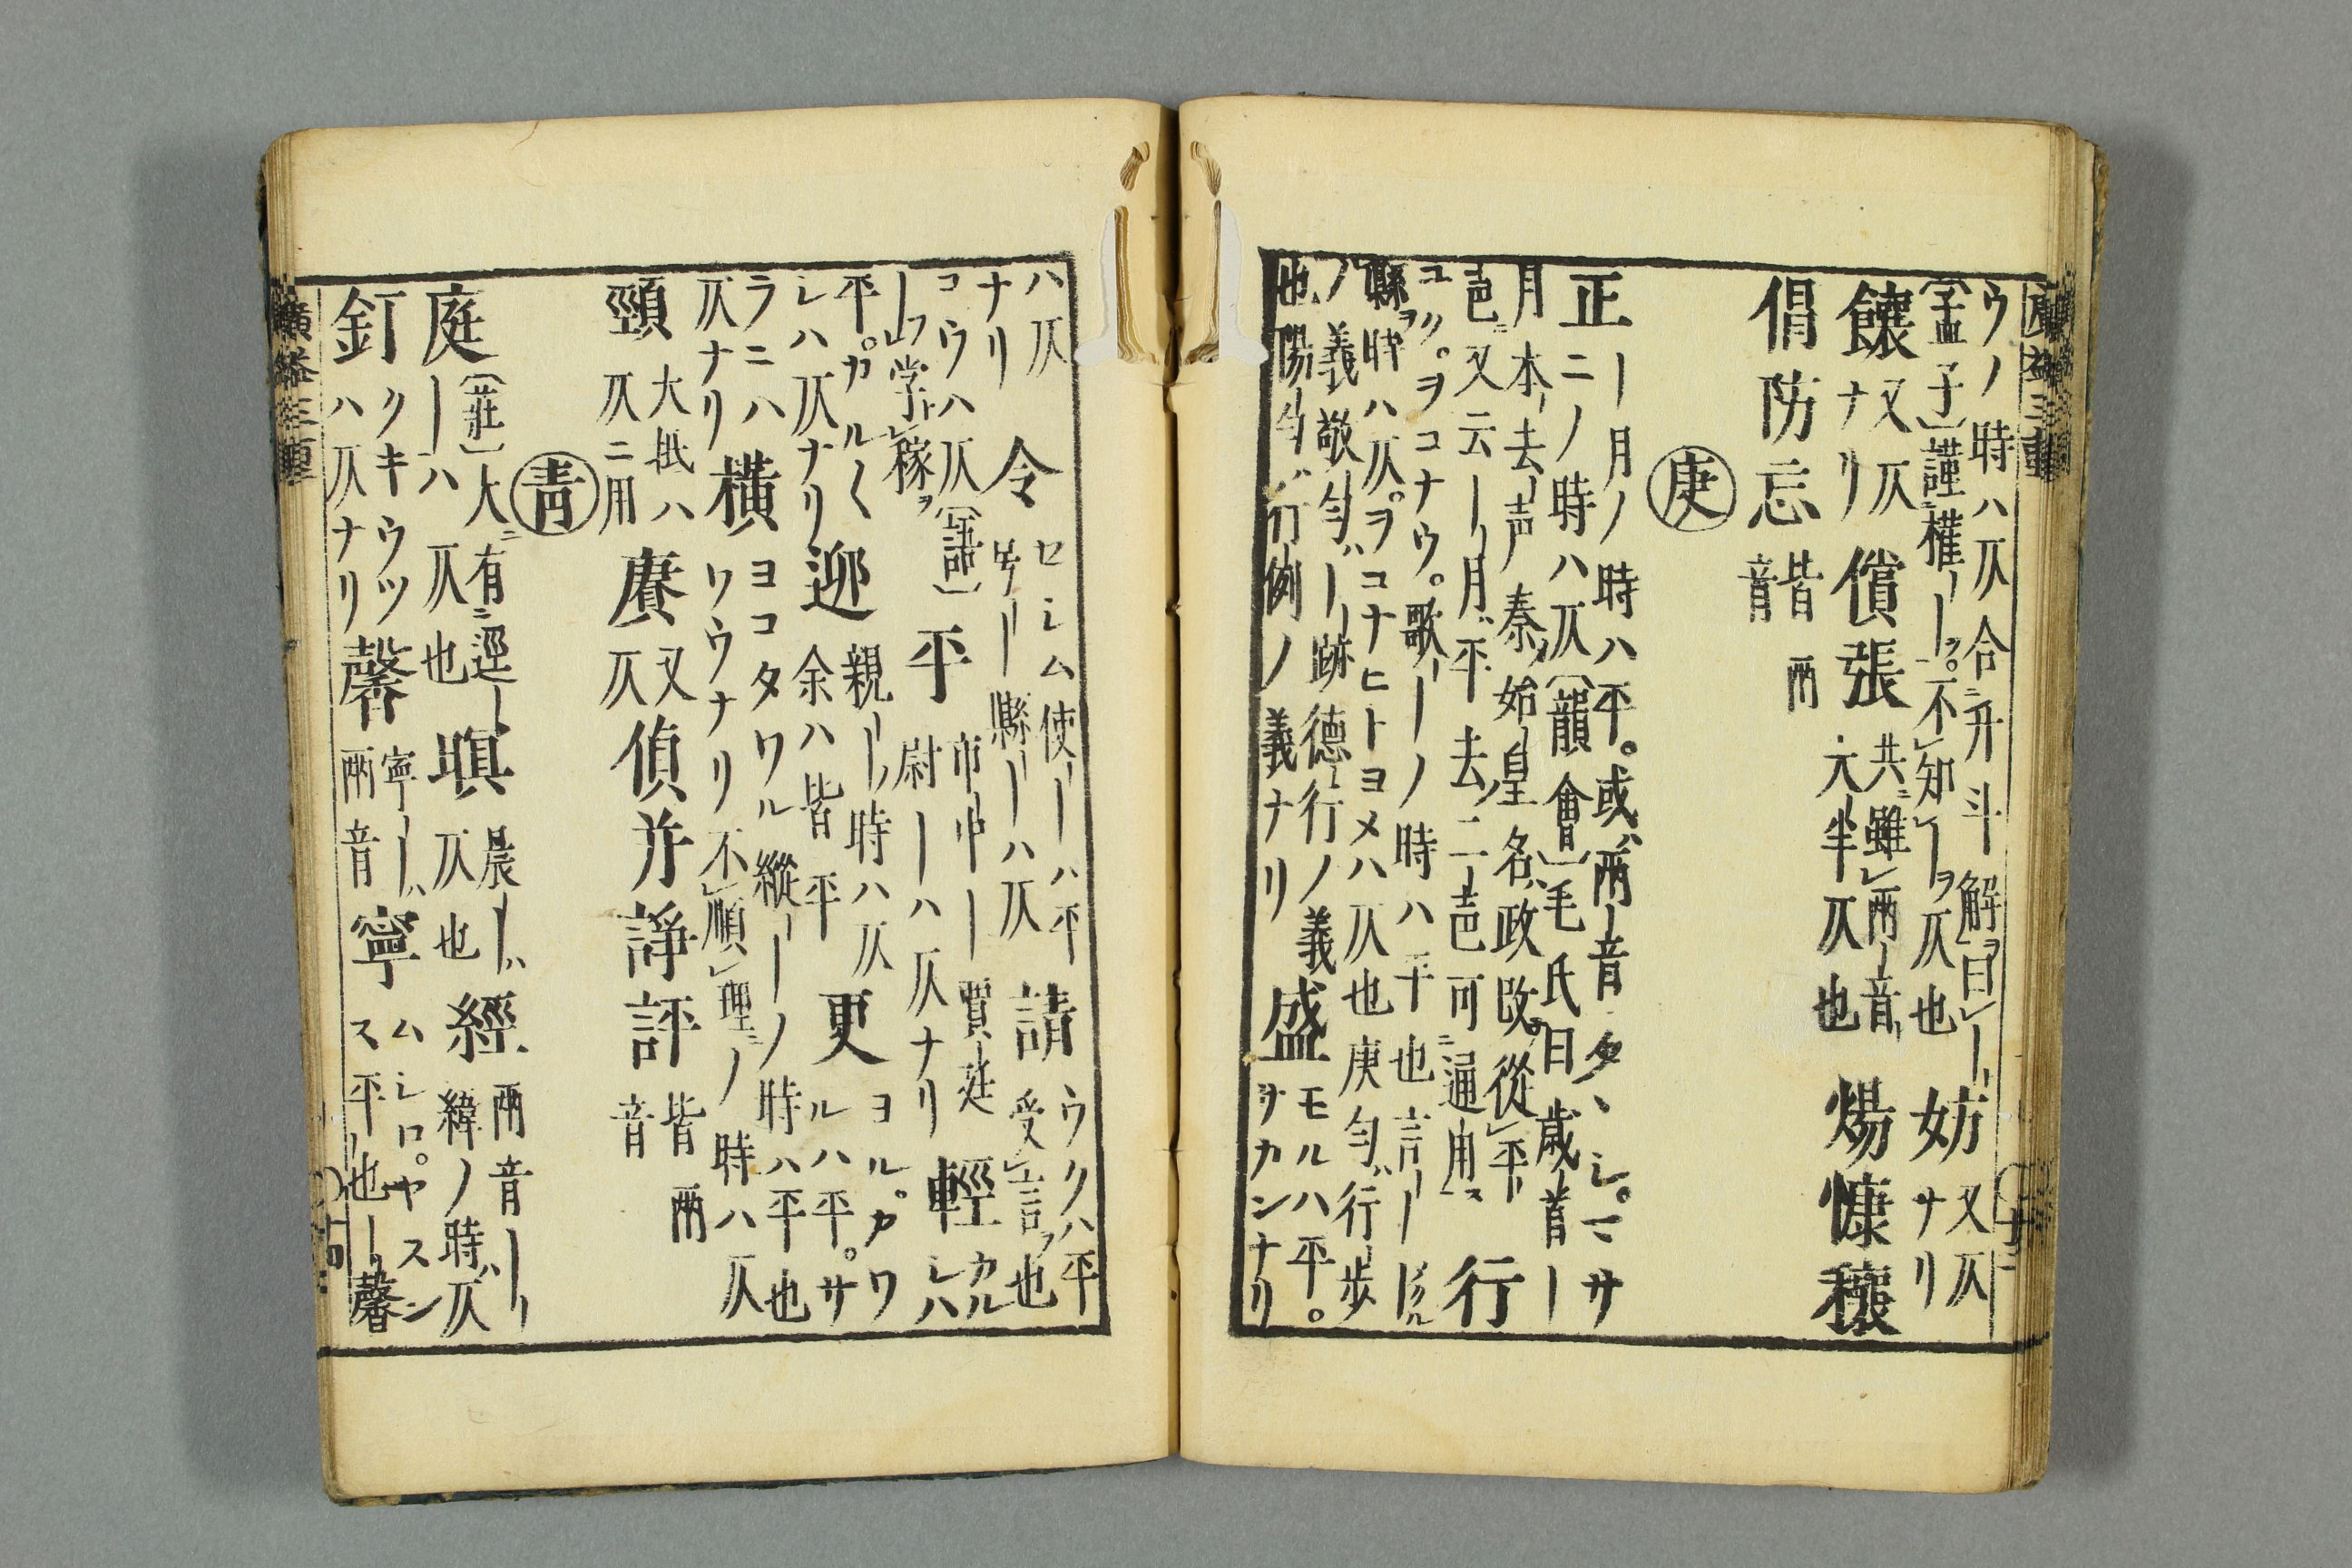 ウノ時ハ仄合ニ升斗解ヲ曰ー
〔孟子〕謹ニ權ーーヲ。不知ーヲ仄也
妨
又仄
ナリ
饟
又仄
ナリ
償張
共ニ雖両ー音ー
大ー半仄也
煬慷穰
倡防忘
皆両
音
庚
正
ー月ノ時ハ平。或ハ両ー音タヽシ。マサ
ニノ時ハ仄〔韻會〕毛氏曰歳ー首ー
月本ー去ー声秦ノ始ー皇名ハ政改從平ー
声ニ又云ーリ月ハ平去ノ二ー声可ニ通用ス
行
ユク。ヲコナウ。歌ーーノ時ハ平也言ーー
縣ヲ時ハ仄。ヲコナヒトヨメハ仄也庚勻ハ行ー歩
ノ義敬勻ハーー跡德行ノ義
也陽ー勻ハ行例ノ義ナリ
盛
モルハ平。
サカンナリ
ハ仄
ナリ
令
セシム使ーーハ平
号ーー縣ーーハ仄
請
ウクハ平
受言ヲ也
コウハ仄〔論語〕
ー学稼ヲ
平
市中ーー賈廷
尉ーーハ仄ナリ
輕
カル
シハ
平。カル〱
シハ仄ナリ
迎
親ーーノ時ハ仄
余ハ皆平
更
ヨル。カワ
ルハ平。サ
ラニハ
仄ナリ
橫
ヨコタワル縱ーーノ時ハ平也
ワウナリ不順理ニノ時ハ仄
頸
大抵ハ
仄ニ用
賡
又
仄
偵并諍評
皆両
音
青
庭
〔莊〕大ニ有ニ逕ー
ーハ仄也
瞑
晨ーハ
仄也
經
両音ーー
緯ノ時ハ仄
釘
クキウツ
ハ仄ナリ
馨
寧ーーハ
両音
寧
ムシロ。ヤスン
ス平ー也ー。馨